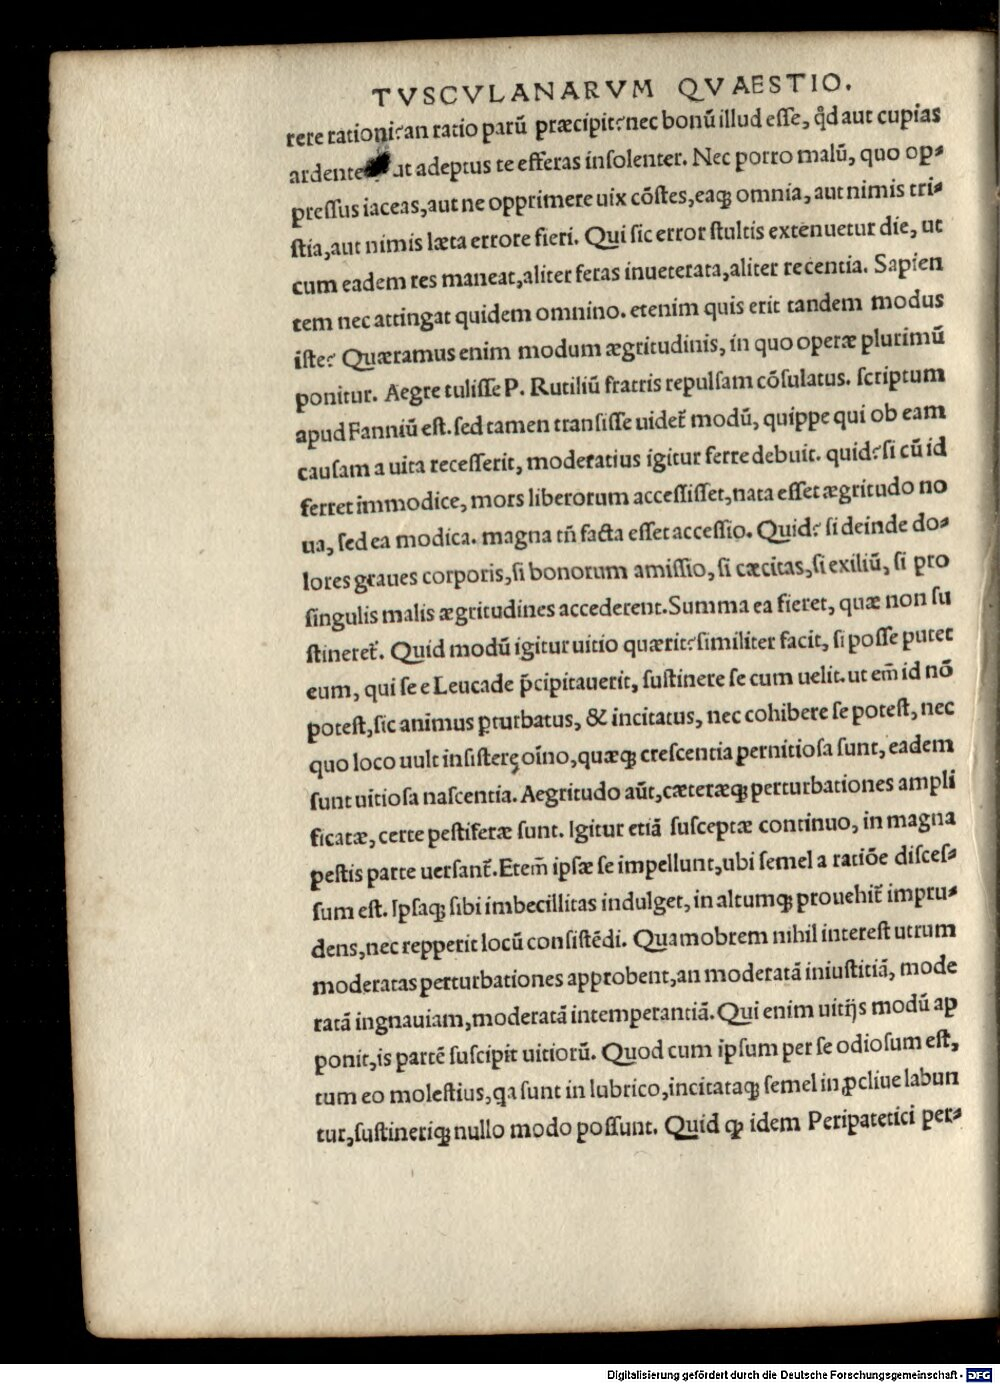 TVSCVLANARVM QVAESTIO.
rere rationi? an ratio parũ præcipit? nec bonũ illud eſſe, q̃d aut cupias
ardente ut adeptus te efferas inſolenter. Nec porro malũ, quo op-
preſſus iaceas, aut ne opprimere uix cõſtes, eaq; omnia, aut nimis tri-
ſtia, aut nimis læta errore fieri. Qui ſic error ſtultis extenuetur die, ut
cum eadem res maneat, aliter feras inueterata, aliter recentia. Sapien
tem nec attingat quidem omnino. etenim quis erit tandem modus
iſte? Quæramus enim modum ægritudinis, in quo operæ plurimũ
ponitur. Aegre tuliſſe P. Rutiliũ fratris repulſam cõſulatus. ſcriptum
apud Fanniũ eſt. ſed tamen tranſiſſe uidet᷑ modũ, quippe qui ob eam
cauſam a uita receſſerit, moderatius igitur ferre debuit. quid? ſi cũ id
ferret immodice, mors liberorum acceſſiſſet, nata eſſet ægritudo no
ua, ſed ea modica. magna tñ facta eſſet acceſſio. Quid? ſi deinde do-
lores graues corporis, ſi bonorum amiſſio, ſi cæcitas, ſi exiliũ, ſi pro
ſingulis malis ægritudines accederent. Summa ea fieret, quæ non ſu
ſtineret᷑. Quid modũ igitur uitio quærit? ſimiliter facit, ſi poſſe putet
eum, qui ſe e Leucade p̃cipitauerit, ſuſtinere ſe cum uelit. ut em̃ id nõ
poteſt, ſic animus ꝑturbatus, & incitatus, nec cohibere ſe poteſt, nec
quo loco uult inſiſtere oĩno, quæq; creſcentia pernitioſa ſunt, eadem
ſunt uitioſa naſcentia. Aegritudo aũt, cæteræq; perturbationes ampli
ficatæ, certe peſtiferæ ſunt. Igitur etiã ſuſceptæ continuo, in magna
peſtis parte uerſant᷑. Etem̃ ipſæ ſe impellunt, ubi ſemel a ratiõe diſceſ-
ſum eſt. Ipſaq; ſibi imbecillitas indulget, in altumq; prouehit᷑ impru-
dens, nec repperit locũ conſiſtẽdi. Quamobrem nihil intereſt utrum
moderatas perturbationes approbent, an moderatã iniuſtitiã, mode
ratã ingnauiam, moderatã intemperantiã. Qui enim uitĳs modũ ap
ponit, is partẽ ſuſcipit uitiorũ. Quod cum ipſum per ſe odioſum eſt,
tum eo moleſtius, qa ſunt in lubrico, incitataq; ſemel in ꝓcliue labun
tur, ſuſtineriq; nullo modo poſſunt. Quid ꝙ idem Peripatetici per-
Digitalisierung gefördert durch die Deutsche Forschungsgemeinschaft - DFG